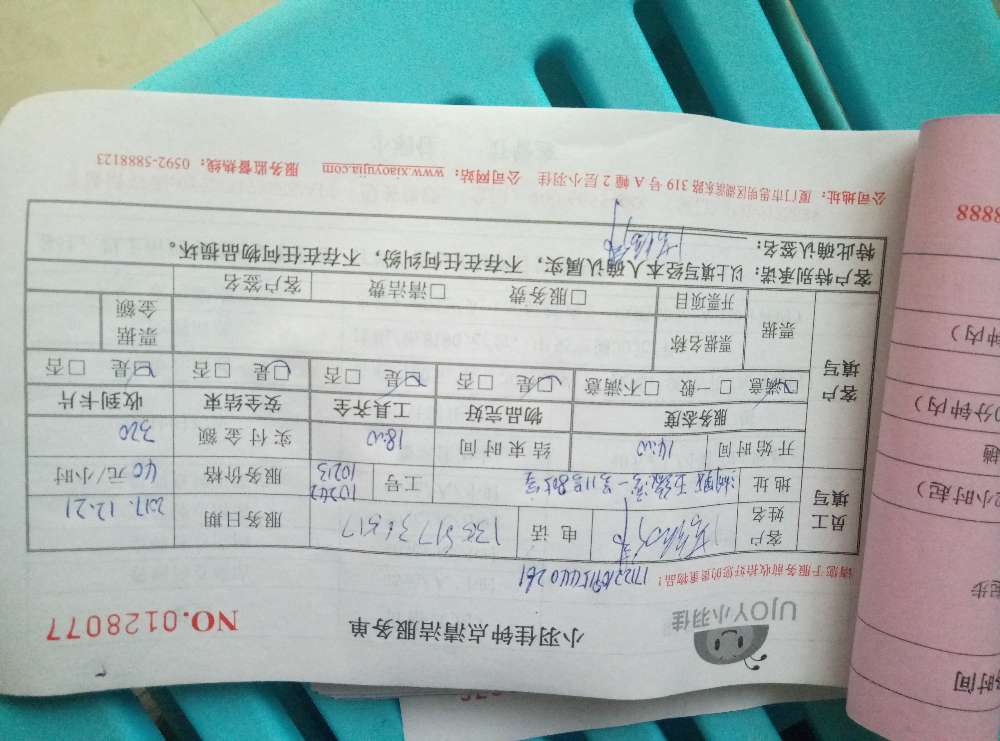 UJOY小羽佳
小羽佳钟点清洁服务单
NO.0128077
请您于服务前收拾好您的贵重物品！
员工填写
客户姓名
电话
服务日期 2017.12.21
地址
工号 10242 10213
服务价格 40元/小时
开始时间 14:00 结束时间 18:00 实付金额 320
客户填写
服务态度 物品完好 工具齐全 安全结束 收到卡片
☑满意 □一般 □不满意 ☑是 □否 ☑是 □否 ☑是 □否 ☑是 □否
票据
票据名称
票据金额
开票项目 □服务费 □清洁费 客户签名
客户特别承诺：以上填写经本人确认属实，不存在任何纠纷，不存在任何物品损坏。
特此确认签名：
公司地址：厦门市思明区湖滨东路319号A幢2层小羽佳 公司网站：www.xiaoyujia.com 服务监督热线：0592-5888123
8888
钟内）
分钟内）
小时起）
起步
时间